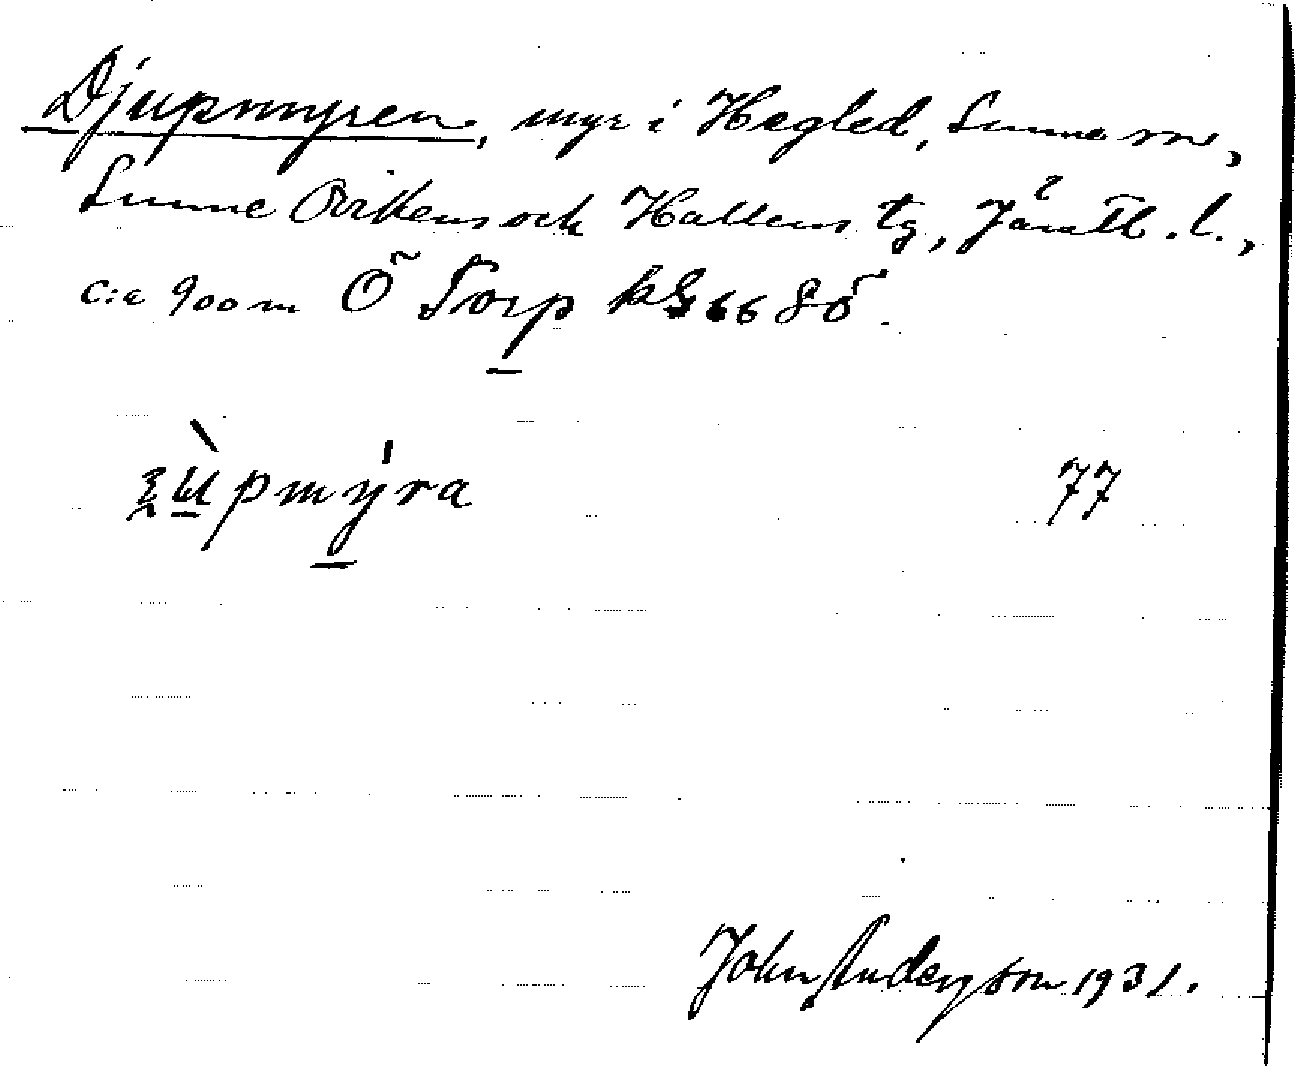 Djupmyren, myr i Hegled, Sunne sn,
Sunne Ovikens och Hallens tg, Jämtl. l.,
c:a 900 m Ö Torp
77
John Anderson 1931.